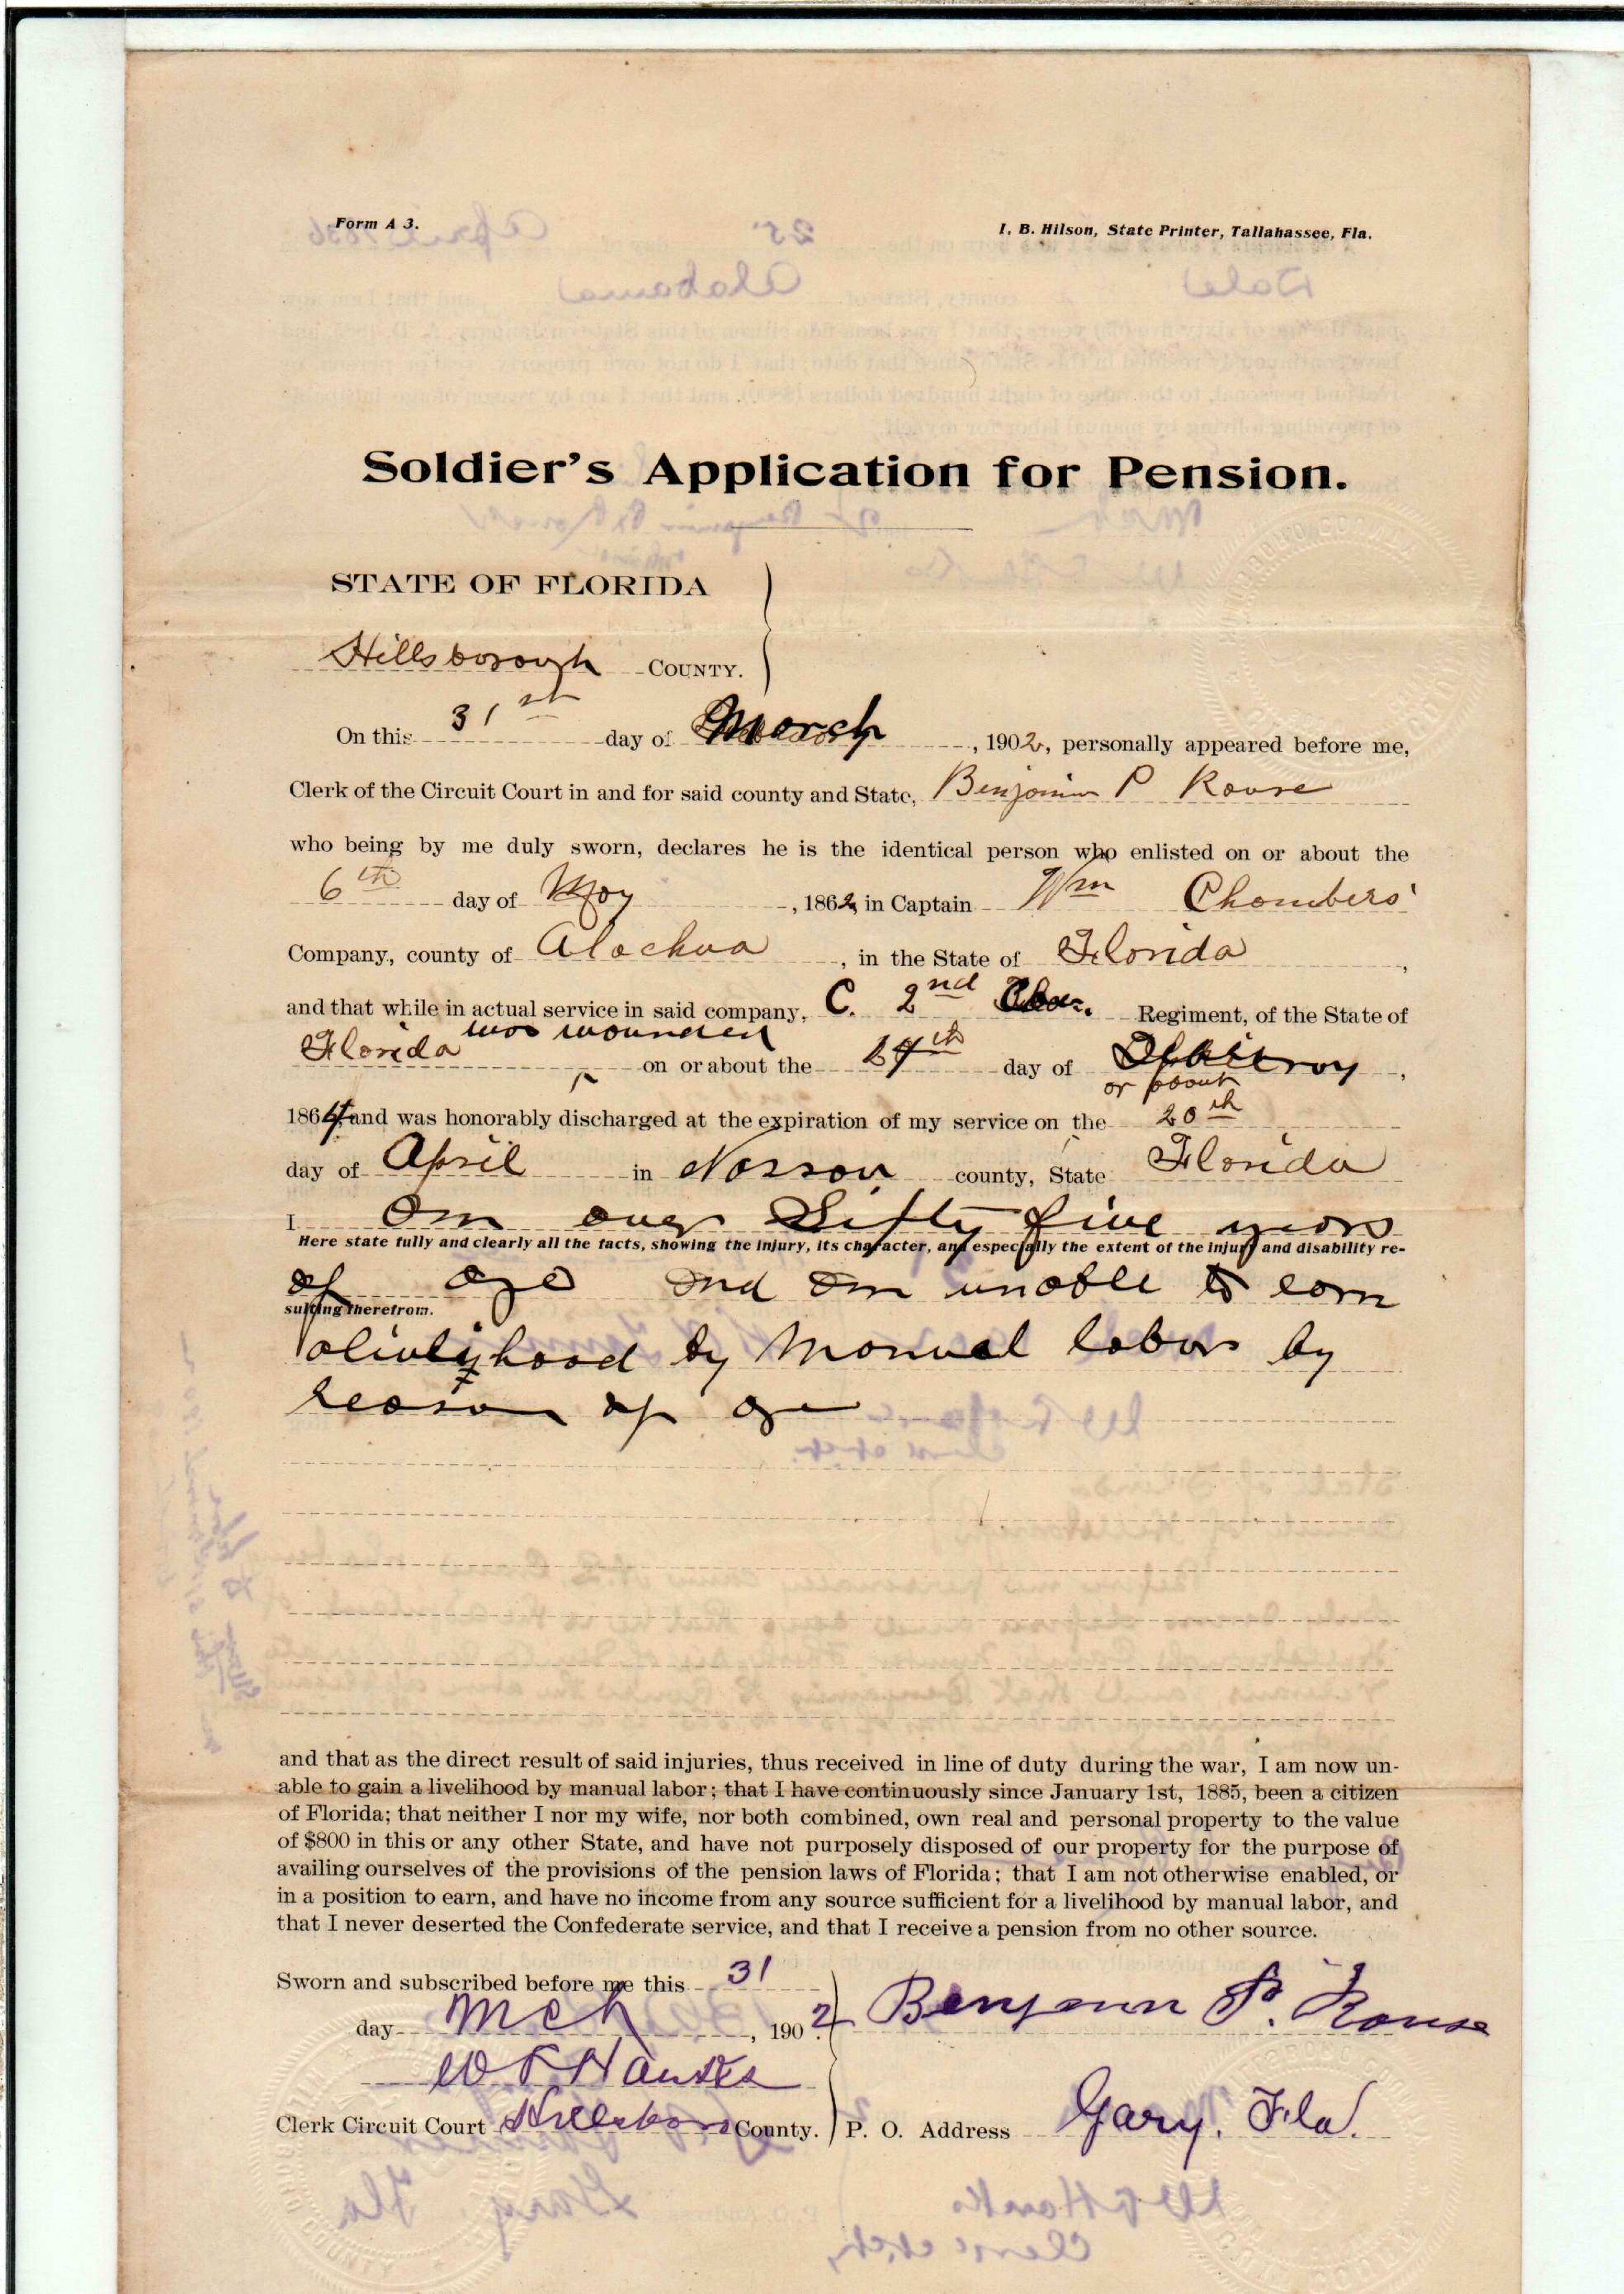 Form A 3.
I. B. Hilson, State Printer, Tallahassee, Fla.
Soldier's Application for Pension.
STATE OF FLORIDA
Hillsborough COUNTY.
On this 31st day of March, 1902, personally appeared before me,
Clerk of the Circuit Court in and for said county and State, Benjamin P Rouse
who being by me duly sworn, declares he is the identical person who enlisted on or about the
6th day of May, 1862, in Captain Wm Chambers'
Company, county of Alachua, in the State of Florida,
and that while in actual service in said company, C. 2nd Regiment, of the State of
was wounded
Florida on or about the day of
or about
1864, and was honorably discharged at the expiration of my service on the 20th
day of April in Nassau county, State Florida
I am over Sixty five years
Here state fully and clearly all the facts, showing the injury, its character, and especially the extent of the injury and disability re-
of age and am unable to earn
sulting therefrom.
a livelyhood by Manual labor by
reason of age
and that as the direct result of said injuries, thus received in line of duty during the war, I am now un-
able to gain a livelihood by manual labor; that I have continuously since January 1st, 1885, been a citizen
of Florida; that neither I nor my wife, nor both combined, own real and personal property to the value
of $800 in this or any other State, and have not purposely disposed of our property for the purpose of
availing ourselves of the provisions of the pension laws of Florida; that I am not otherwise enabled, or
in a position to earn, and have no income from any source sufficient for a livelihood by manual labor, and
that I never deserted the Confederate service, and that I receive a pension from no other source.
Sworn and subscribed before me this 31
day Mch, 1902 Benjamin P. Rouse
Clerk Circuit Court Hillsboro County. P. O. Address Gary, Fla.